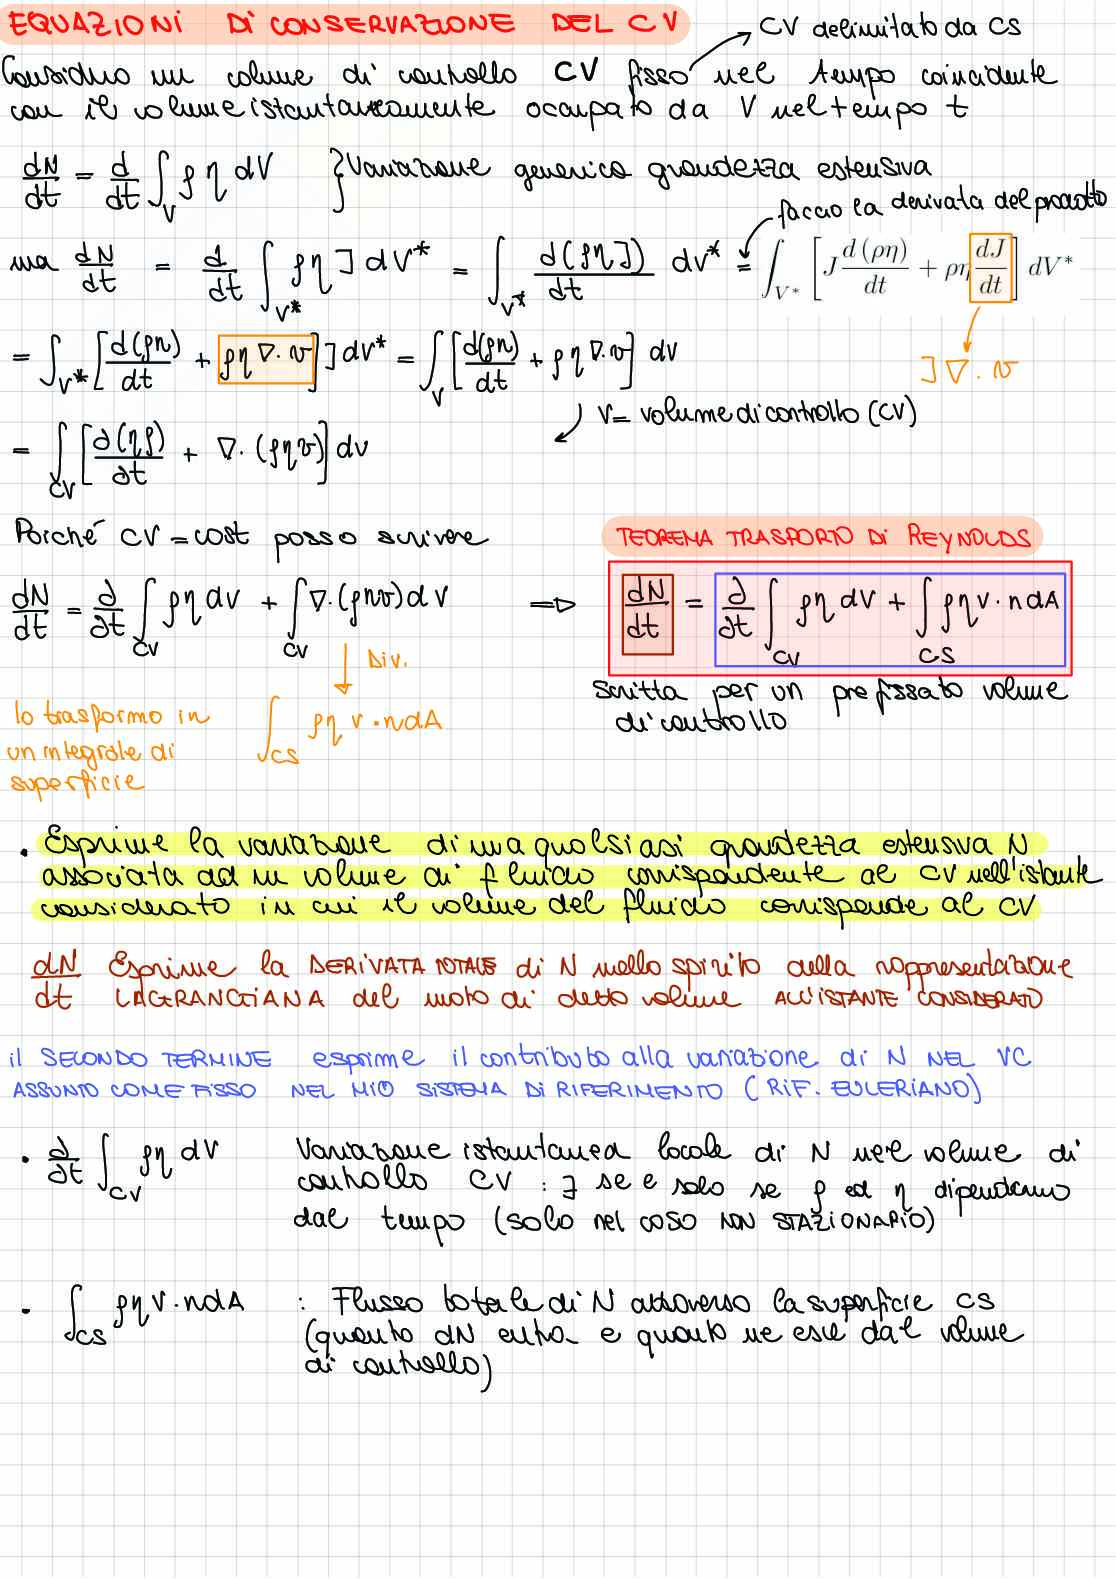 EQUAZIONI DI CONSERVAZIONE DEL CV
CV delimitato da CS
Considero un volume di controllo CV fisso nel tempo coincidente
con il volume istantaneamente occupato da V nel tempo t
dN/dt = d/dt ∫_V ρη dV } Variazione generica grandezza estensiva
faccio la derivata del prodotto
ma dN/dt = d/dt ∫_V* ρη J dV* = ∫_V* d(ρηJ)/dt dV* = ∫_V* [J d(ρη)/dt + ρη dJ/dt] dV*
= ∫_V* [d(ρη)/dt + ρη ∇·v] J dV* = ∫_V [d(ρη)/dt + ρη ∇·v] dV
J ∇·v
V = volume di controllo (CV)
= ∫_CV [∂(ηρ)/∂t + ∇·(ρηv)] dV
Poiché CV = cost posso scrivere
TEOREMA TRASPORTO DI REYNOLDS
dN/dt = ∂/∂t ∫_CV ρη dV + ∫_CV ∇·(ρηv) dV ⇒ dN/dt = ∂/∂t ∫_CV ρη dV + ∫_CS ρηv·n dA
Div.
scritta per un prefissato volume
di controllo
lo trasformo in
un integrale di
superficie
∫_CS ρη v·n dA
• Esprime la variazione di una qualsiasi grandezza estensiva N
associata ad un volume di fluido corrispondente al CV nell'istante
considerato in cui il volume del fluido corrisponde al CV
dN/dt Esprime la DERIVATA TOTALE di N nello spirito della rappresentazione
LAGRANGIANA del moto di detto volume ALL'ISTANTE CONSIDERATO
il SECONDO TERMINE esprime il contributo alla variazione di N NEL VC
ASSUNTO COME FISSO NEL MIO SISTEMA DI RIFERIMENTO (RIF. EULERIANO)
• ∂/∂t ∫_CV ρη dV Variazione istantanea locale di N nel volume di
controllo CV : ∃ se e solo se ρ ed η dipendono
dal tempo (solo nel caso NON STAZIONARIO)
• ∫_CS ρη v·n dA : Flusso totale di N attraverso la superficie CS
(quanto dN entra e quanto ne esce dal volume
di controllo)